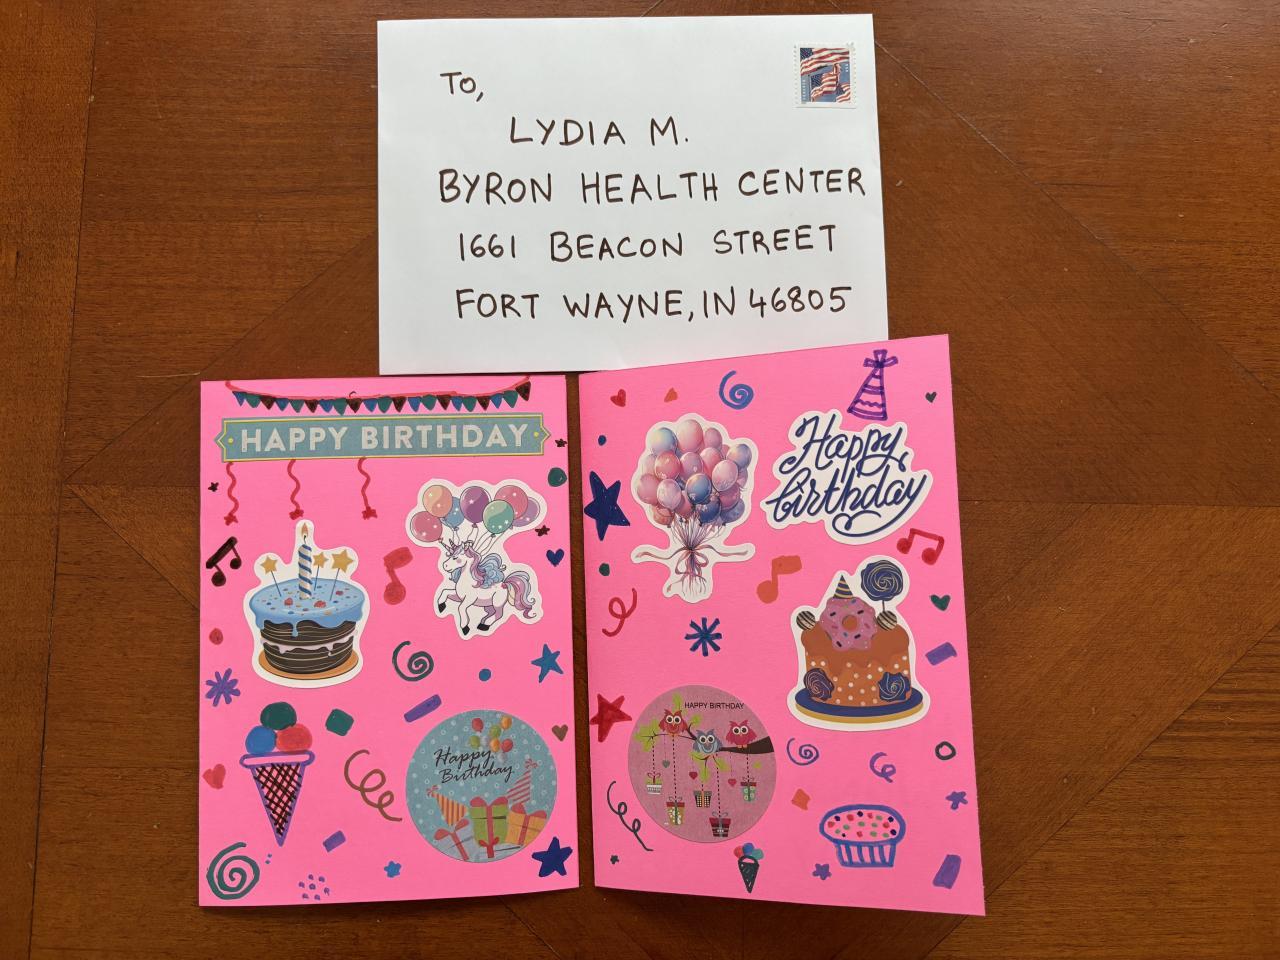 To,
LYDIA M.
BYRON HEALTH CENTER
1661 BEACON STREET
FORT WAYNE, IN 46805
HAPPY BIRTHDAY
Happy
Birthday
Happy
birthday
HAPPY BIRTHDAY